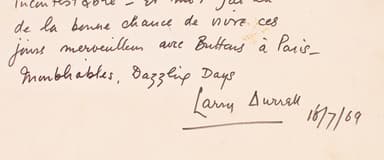 de la bonne chance de vivre ces
jours merveilleux avec Buttons à Paris –
Inoubliables, Dazzling Days
Larry Durrell
16/7/69